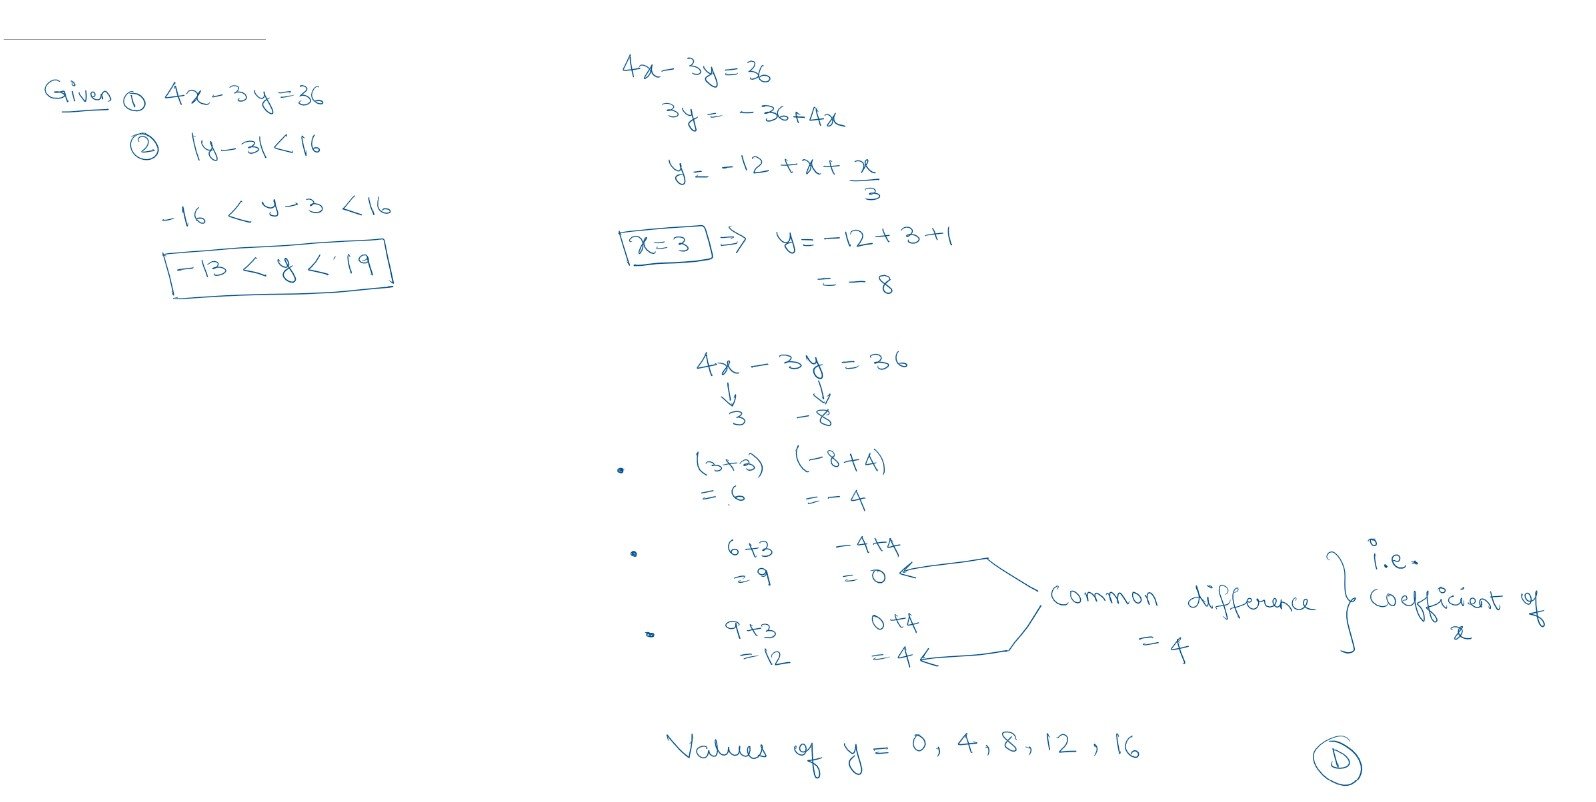 Given ① 4x-3y=36
② |y-3|<16
-16 < y-3 <16
-13 < y < 19
4x-3y=36
3y= -36+4x
y= -12 +x+ x/3
x=3 ⇒ y=-12+3+1
= -8
4x - 3y = 36
↓ ↓
3 -8
• (3+3) (-8+4)
= 6 =-4
• 6+3 -4+4
=9 = 0
• 9+3 0+4
=12 =4
Common difference
= 4
i.e.
coefficient of
x
Values of y = 0, 4, 8, 12, 16 Ⓓ